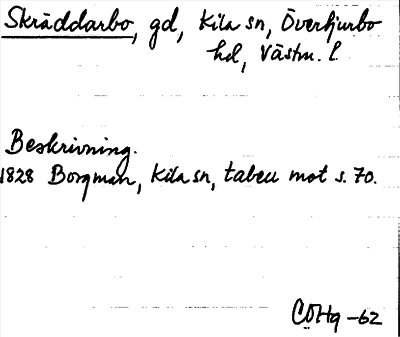 Skräddarbo, gd, Kila sn, Övertjurbo
hd, Västm. l.
Beskrivning.
1828 Borgman, Kila sn, tabell mot s. 70.
CÖHg -62